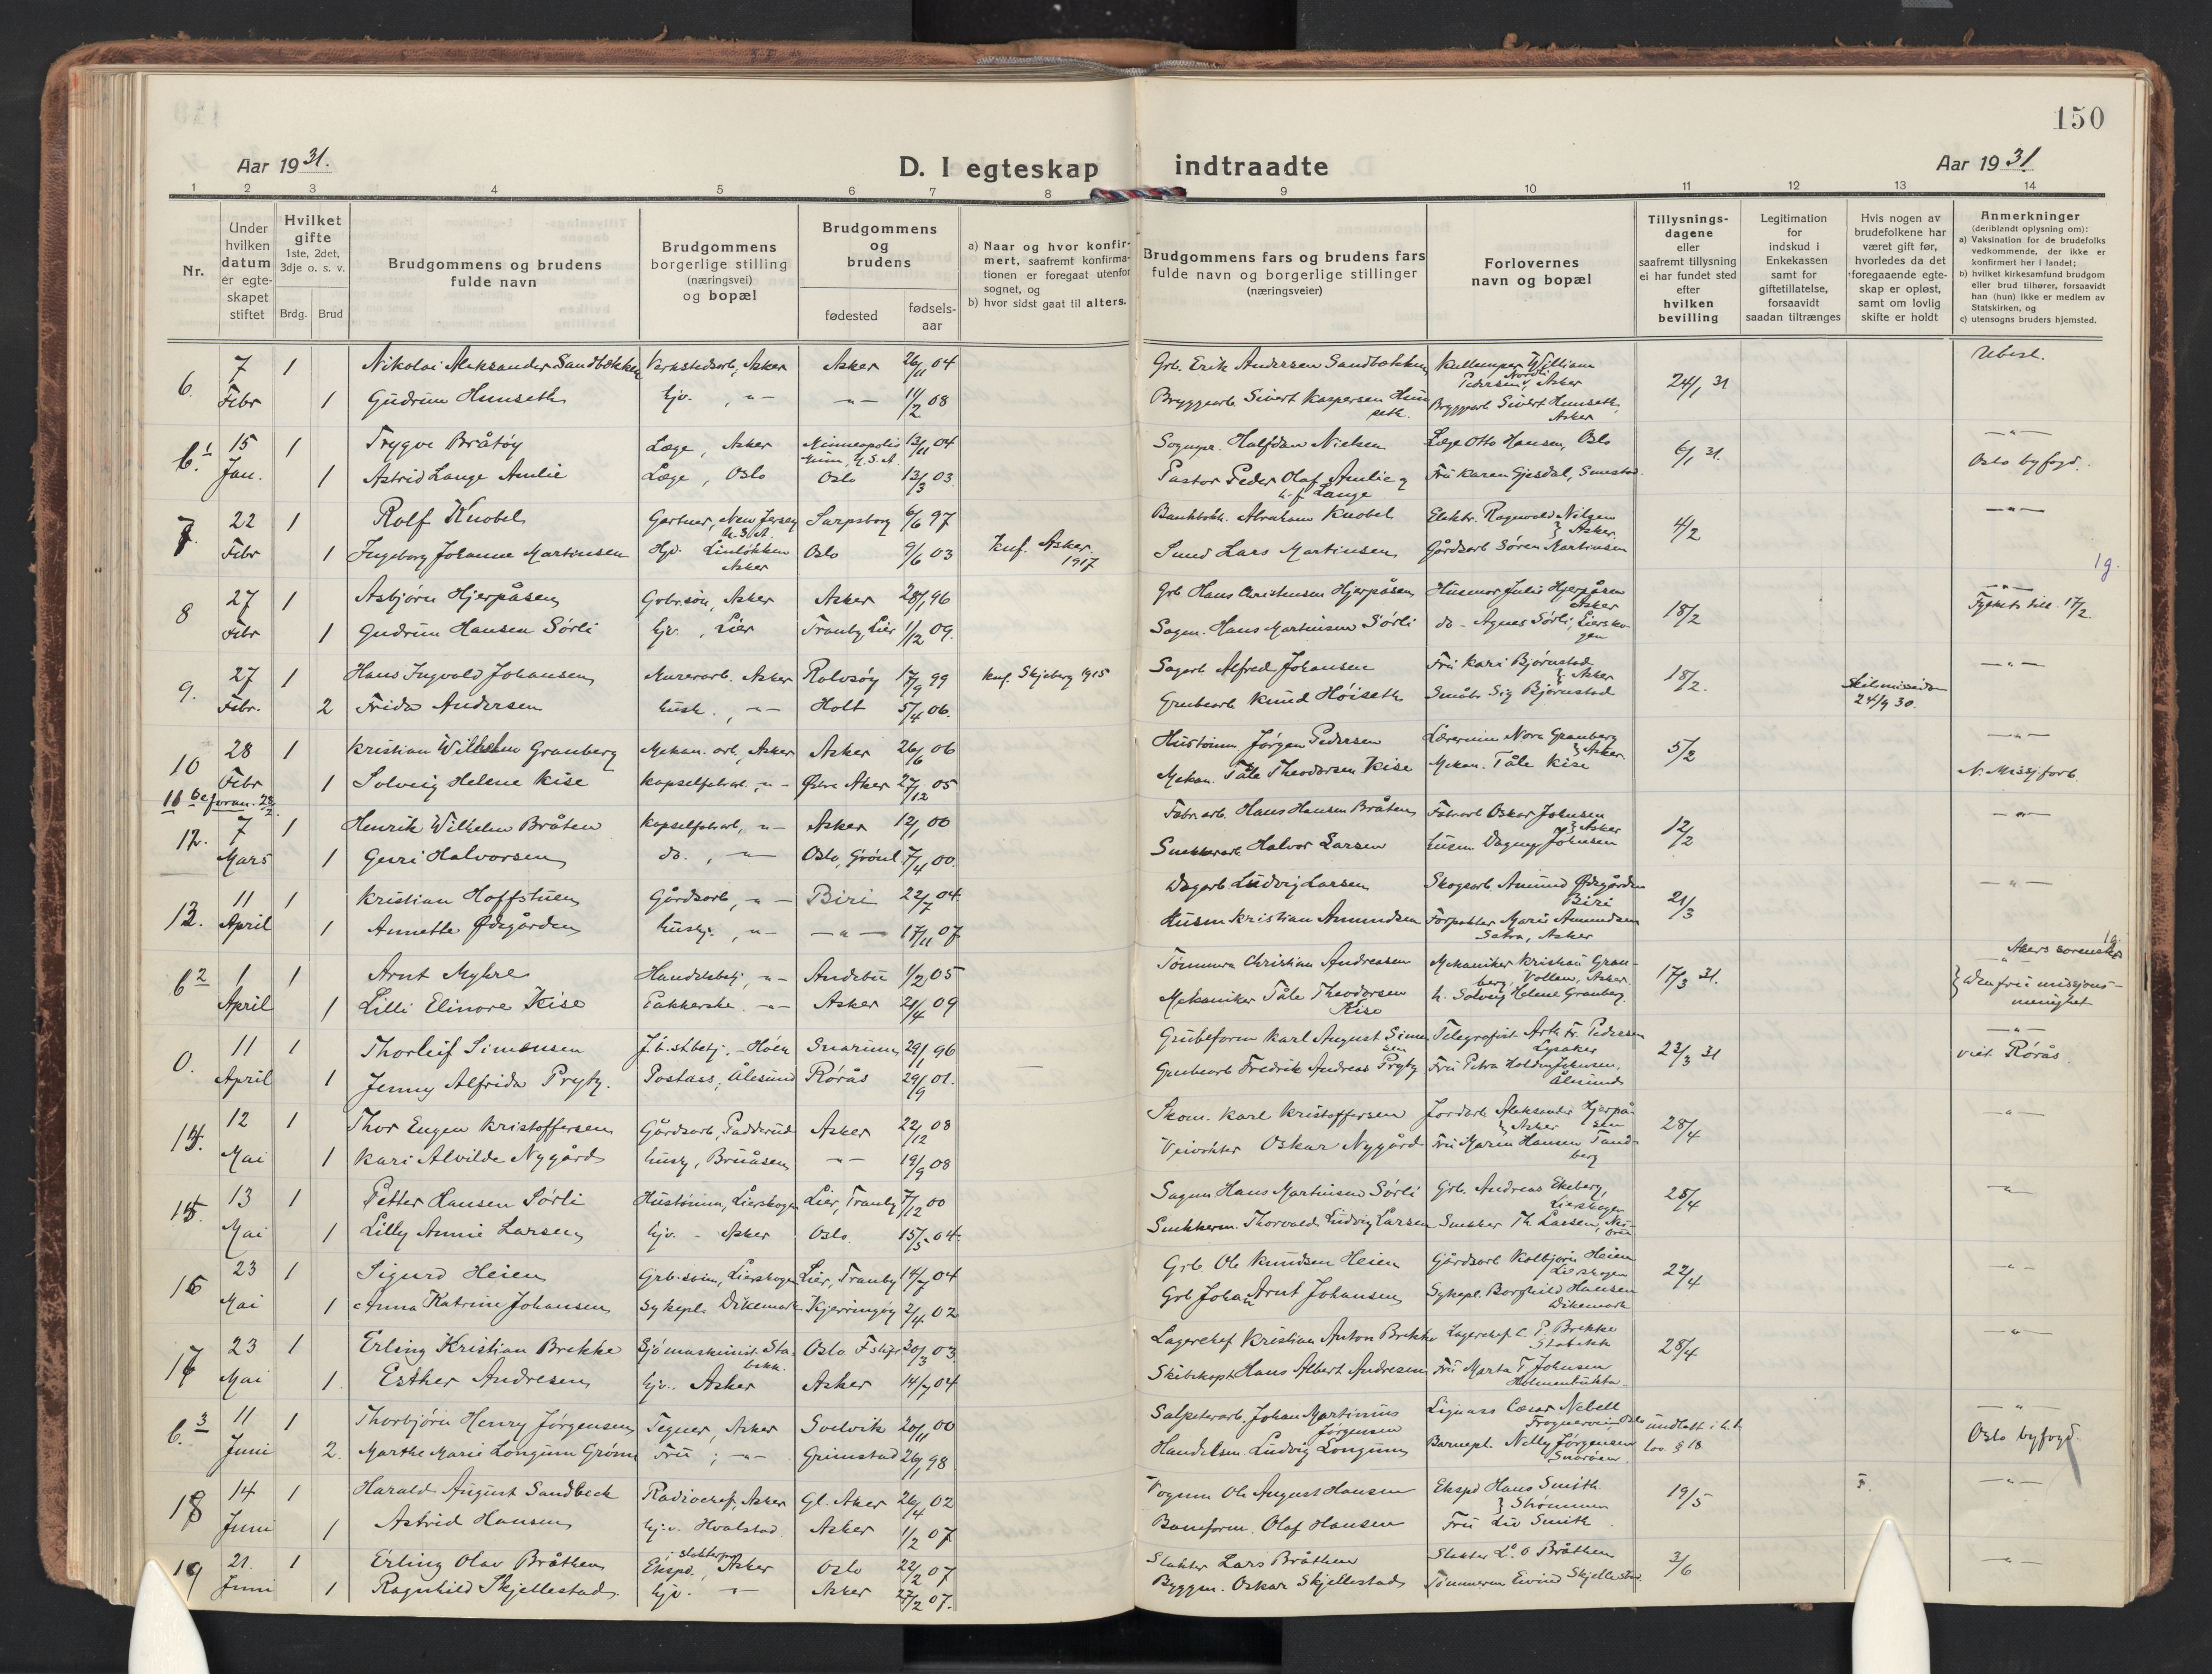 150
Aar 1931.
D. I egteskap indtraadte
Aar 1931
1 2 3 4 5 6 7 8 9 10 11 12 13 14
Nr.
Under hvilken datum er egteskapet stiftet
Hvilket gifte 1ste, 2det, 3dje o. s. v.
Brdg. Brud
Brudgommens og brudens fulde navn
Brudgommens borgerlige stilling (næringsvei) og bopæl
Brudgommens og brudens
fødested
fødsels-aar
a) Naar og hvor konfir-
mert, saafremt konfirma-
tionen er foregaat utenfor
sognet, og
b) hvor sidst gaat til alters.
Brudgommens fars og brudens fars
fulde navn og borgerlige stillinger
(næringsveier)
Forlovernes
navn og bopæl
Tillysnings-
dagene
eller
saafremt tillysning
ei har fundet sted
efter
hvilken
bevilling
Legitimation
for
indskud i
Enkekassen
samt for
giftetillatelse,
forsaavidt
saadan tiltrænges
Hvis nogen av
brudefolkene har
været gift før,
hvorledes da det
foregaaende egte-
skap er opløst,
samt om lovlig
skifte er holdt
Anmerkninger
(deriblandt oplysning om):
a) Vaksination for de brudefolks
vedkommende, der ikke er
konfirmert her i landet;
b) hvilket kirkesamfund brudgom
eller brud tilhører, forsaavidt
han (hun) ikke er medlem av
Statskirken, og
c) utensogns bruders hjemsted.
6. 7 Febr 1 Nikolai Aleksander Sandbækken Verkstedsarb., Asker Asker 26/11 04 Grb. Erik Andersen Sandbækken William Pedersen, Nordli Asker 24/1 31 Ubesl.
1 Gudrun Hunseth Hjv. , -"- -"- 11/2 08 Bryggearb. Sivert Kaspersen Hunseth. Bryggearb Sivert Hunseth, Asker
6.1 15 Jan. 1 Trygve Bråtøy Læge, Asker Minneapolis Minn, U.S.A. 13/11 04 Sognepr. Halfdan Nielsen Læge Otto Hansen, Oslo 6/1 31. -"-
1 Astrid Lange Amlie Læge, Oslo Oslo 13/3 03. Pastor Peder Olaf Amlie og h. f. Lange Fru Karen Gjesdal, Smestad Oslo byfogd.
7. 22 Febr 1 Rolf Knobel Gartner, New Jersey U.S.A. Sarpsborg 6/6 97 Bankbokh. Abraham Knobel Elektr. Ragnvald Nilsen } Asker. 4/2 -"-
1 Ingeborg Johanne Martinsen Hjv. Linløkken Asker Oslo 9/6 03 Knf. Asker. 1917 Smed Lars Martinsen Gårdsarb Søren Martinsen 1g.
8 27 Febr 1 Asbjørn Hjerpåsen Grbr.søn, Asker Asker 28/1 96 Grb. Hans Christensen Hjerpåsen Husmor Julie Hjerpåsen Asker 18/2 -"-
1 Gudrun Hansen Sørli Hjv. , Lier Tranby Lier 1/2 09. Sagm. Hans Martinsen Sørli do - Agnes Sørli, Lierskogen Fylkets till. 17/2.
9. 27 Febr. 1 Hans Ingvald Johansen Murerarb. Asker Rolvsøy 17/9 99 knf. Skjeberg 1915 Sagarb Alfred Johansen Fru Kari Bjørnstad } Asker 18/2. -"-
2 Frida Andersen Hush. , -"- Holt 5/4 06. Grubearb Knud Høiseth Småbr Sig Bjørnstad Skilsmisse 24/9 30.
10 28 Febr 1 Kristian Wilhelm Granberg Mekan. arb., Asker Asker 26/6 06 Hustømm Jørgen Pedersen Lærerinne Nora Granberg } Asker 5/2 -"-
1 Solveig Helene Kise Kapselfabr., -"- Østre Aker 27/12 05 Mekan. Tåle Theodorsen Kise Mekan. Tåle Kise N. Misj.forb.
11 Se foran. 28/2
12. 7 Mars 1 Henrik Wilhelm Bråten Kapselfabrarb, -"- Asker 12/1 00 Fabr.arb. Hans Hansen Bråten Fabrarb Oskar Johnsen } Asker 12/2 -"-
1 Guri Halvorsen do. , -"- Oslo, Grønl. 7/4 00. Snekkerarb. Halvor Larsen Husm Dagny Johnsen
13. 11 April 1 Kristian Hoffstuen Gårdsarb, -"- Biri 22/7 04. Dagarb Ludvig Larsen Skogsarb. Amund Ødegården Biri 21/3 -"-
1 Annette Ødegården Hushj. , -"- -"- 17/11 07 Husm Kristian Amundsen Forpakter Marie Amundsen Setra, Asker
6 2 1 April 1 Arnt Myhre Handelsbetj, -"- Andebu 1/2 05 Tømmerm Christian Andreasen Mekaniker Kristian Granberg Vollen, Asker. 17/3 31. Akers sorenskr 1g.
1 Lilli Elinore Kise Pakkerske. -"- Asker 21/4 09 Mekaniker Tåle Theodorsen Kise h. Solveig Helene Granberg } Den frie missjons-menighet
0. 11 April 1 Thorleif Simensen J.b.st.betj. - Høn Snarum 29/1 96 Grubeform Karl August Simensen Telegrafist Arth Fr. Pedersen Lysaker 23/3 31 -"-
1 Jenny Alfrida Prytz. Postass, Ålesund Rørås 29/9 01. Grubearb Fredrik Andreas Prytz Fru Petra Holden Johnsen, Ålesund viet Rørås.
14. 12 Mai 1 Thor Eugen Kristoffersen Gårdsarb, Padderud Asker 22/12 08 Skom. Karl Kristoffersen Jordarb Aleksander Hjerpåsen } Asker 28/4 -"-
1 Kari Alvilde Nygård Hushj, Bruåsen -"- 19/9 08 Veivokter Oskar Nygård Fru Maren Hansen Tandberg
15. 13 Mai 1 Petter Hansen Sørli Hustømm, Lierskogen Lier, Tranby 7/12 00 Sagm Hans Martinsen Sørli Grb. Andreas Ekeberg, Lierskogen 25/4 -"-
1 Lilly Annie Larsen Hjv. - Asker Oslo. 15/5 04. Snekkerm. Thorvald Ludvig Larsen Snekker Th Larsen,
16 23 Mai 1 Sigurd Heien Grb.søn, Lierskogen Lier, Tranby 14/7 04 Grb. Ole Knudsen Heien Gårdsarb Kolbjørn Heien Lierskogen 22/4 -"-
1 Anna Katrine Johansen Sykepl. Dikemark Kjerringøy 2/4 02 Grb Johan Arnt Johansen Sykepl. Borghild Hansen Dikemark
17 23 Mai 1 Erling Kristian Brekke Sjømaskinist. Stabekk. Oslo 30/3 03. Lagerchef Kristian Anton Brekke Lagerchef C P. Brekke Stabekk 28/4 -"-
1. Esther Andresen Hjv. Asker Asker 14/7 04 Skibskapt Hans Albert Andresen Fru Marta T Johnsen Holmenbukta
6. 3 11 Juni 1 Thorbjørn Henry Jørgensen Tegner, Asker Svelvik 20/11 00 Salpeterarb. Johan Martinius Jørgensen Cæsar Nebell Frognerveien Oslo undlatt i h.t. -"-
2. Marthe Marie Longum Grøm Fru ; -"- Grimstad 26/1 98 Handelsm. Ludvig Longum Barnepl. Nelly Jørgensen Snarøen. lov § 18 Oslo byfogd.
18 14 Juni 1 Harald August Sandbeck Radiochef, Asker Gl. Aker 26/4 02 Vognm Ole August Hansen Ekspd Hans Smith } Strømmen 19/5 F. -"-
1 Astrid Hansen Hjv. Hvalstad. Asker 1/2 07 Baneform. Olaf Hansen Fru Liv Smith
19 21. Juni 1 Erling Olav Bråthen Ekspd. i slakterforr Asker Oslo 22/2 07 Slakter Lars Bråthen Slakter L. O Bråthen 3/6 -"-
1 Ragnhild Skjellestad. Hjv. -"- Asker 27/2 07. Byggm. Oskar Skjellestad Tømmerm Eivind Skjellestad